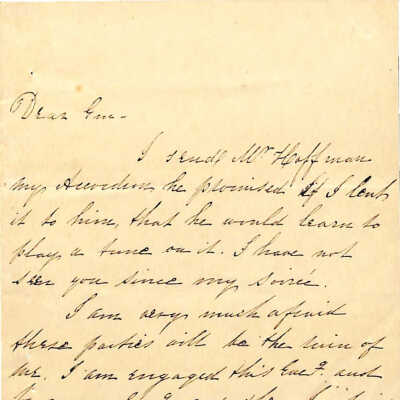 Dear Gus-
I send Mr Hoffman
my Accordion he promised if I lent
it to him, that he would learn to
play a tune on it. I have not
seen you since my soireé.
I am very much afraid
these parties will be the ruin of
me. I am engaged this Eveg. and